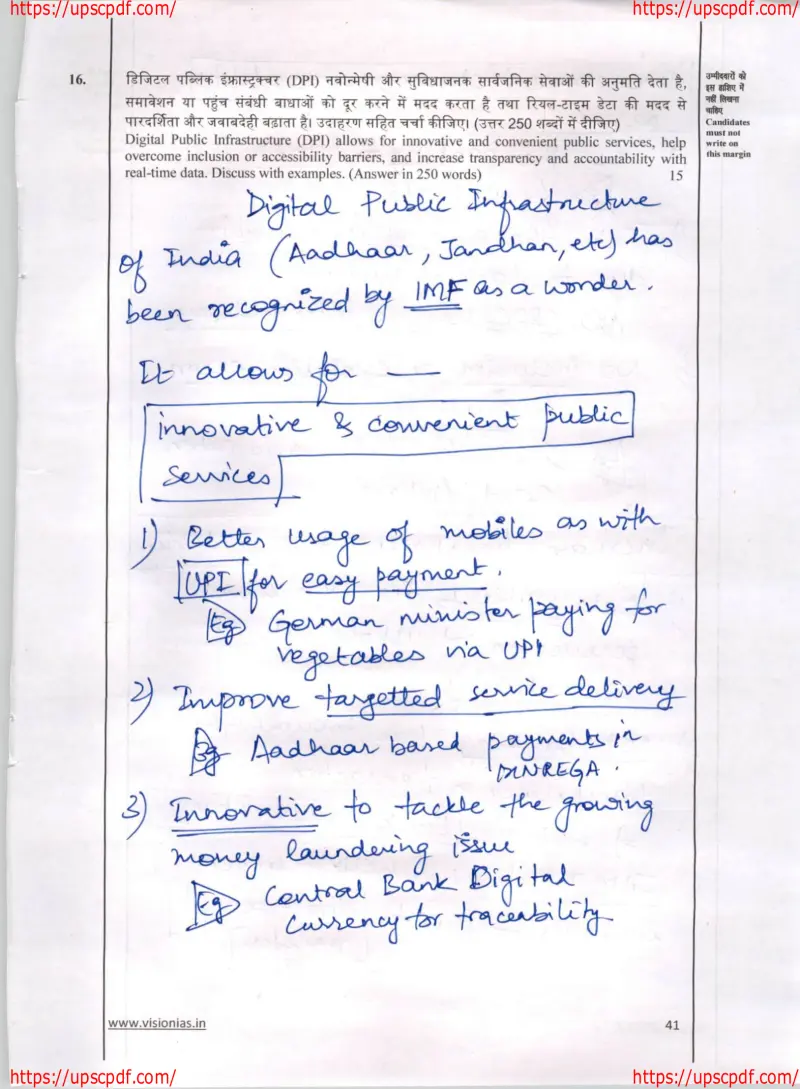 https://upscpdf.com/ https://upscpdf.com/
16. डिजिटल पब्लिक इंफ्रास्ट्रक्चर (DPI) नवोन्मेषी और सुविधाजनक सार्वजनिक सेवाओं की अनुमति देता है,
समावेशन या पहुंच संबंधी बाधाओं को दूर करने में मदद करता है तथा रियल-टाइम डेटा की मदद से
पारदर्शिता और जवाबदेही बढ़ाता है। उदाहरण सहित चर्चा कीजिए। (उत्तर 250 शब्दों में दीजिए)
Digital Public Infrastructure (DPI) allows for innovative and convenient public services, help
overcome inclusion or accessibility barriers, and increase transparency and accountability with
real-time data. Discuss with examples. (Answer in 250 words) 15
उम्मीदवारों को
इस हाशिए में
नहीं लिखना
चाहिए
Candidates
must not
write on
this margin
Digital Public Infrastructure
of India (Aadhaar, Jandhan, etc) has
been recognized by IMF as a wonder.
It allows for —
innovative & convenient public
services
1) Better usage of mobiles as with
UPI for easy payment.
Eg German minister paying for
vegetables via UPI
2) Improve targetted service delivery
Eg Aadhaar based payments in
MNREGA.
3) Innovative to tackle the growing
money laundering issue
Eg Central Bank Digital
Currency for traceability
www.visionias.in 41
https://upscpdf.com/ https://upscpdf.com/